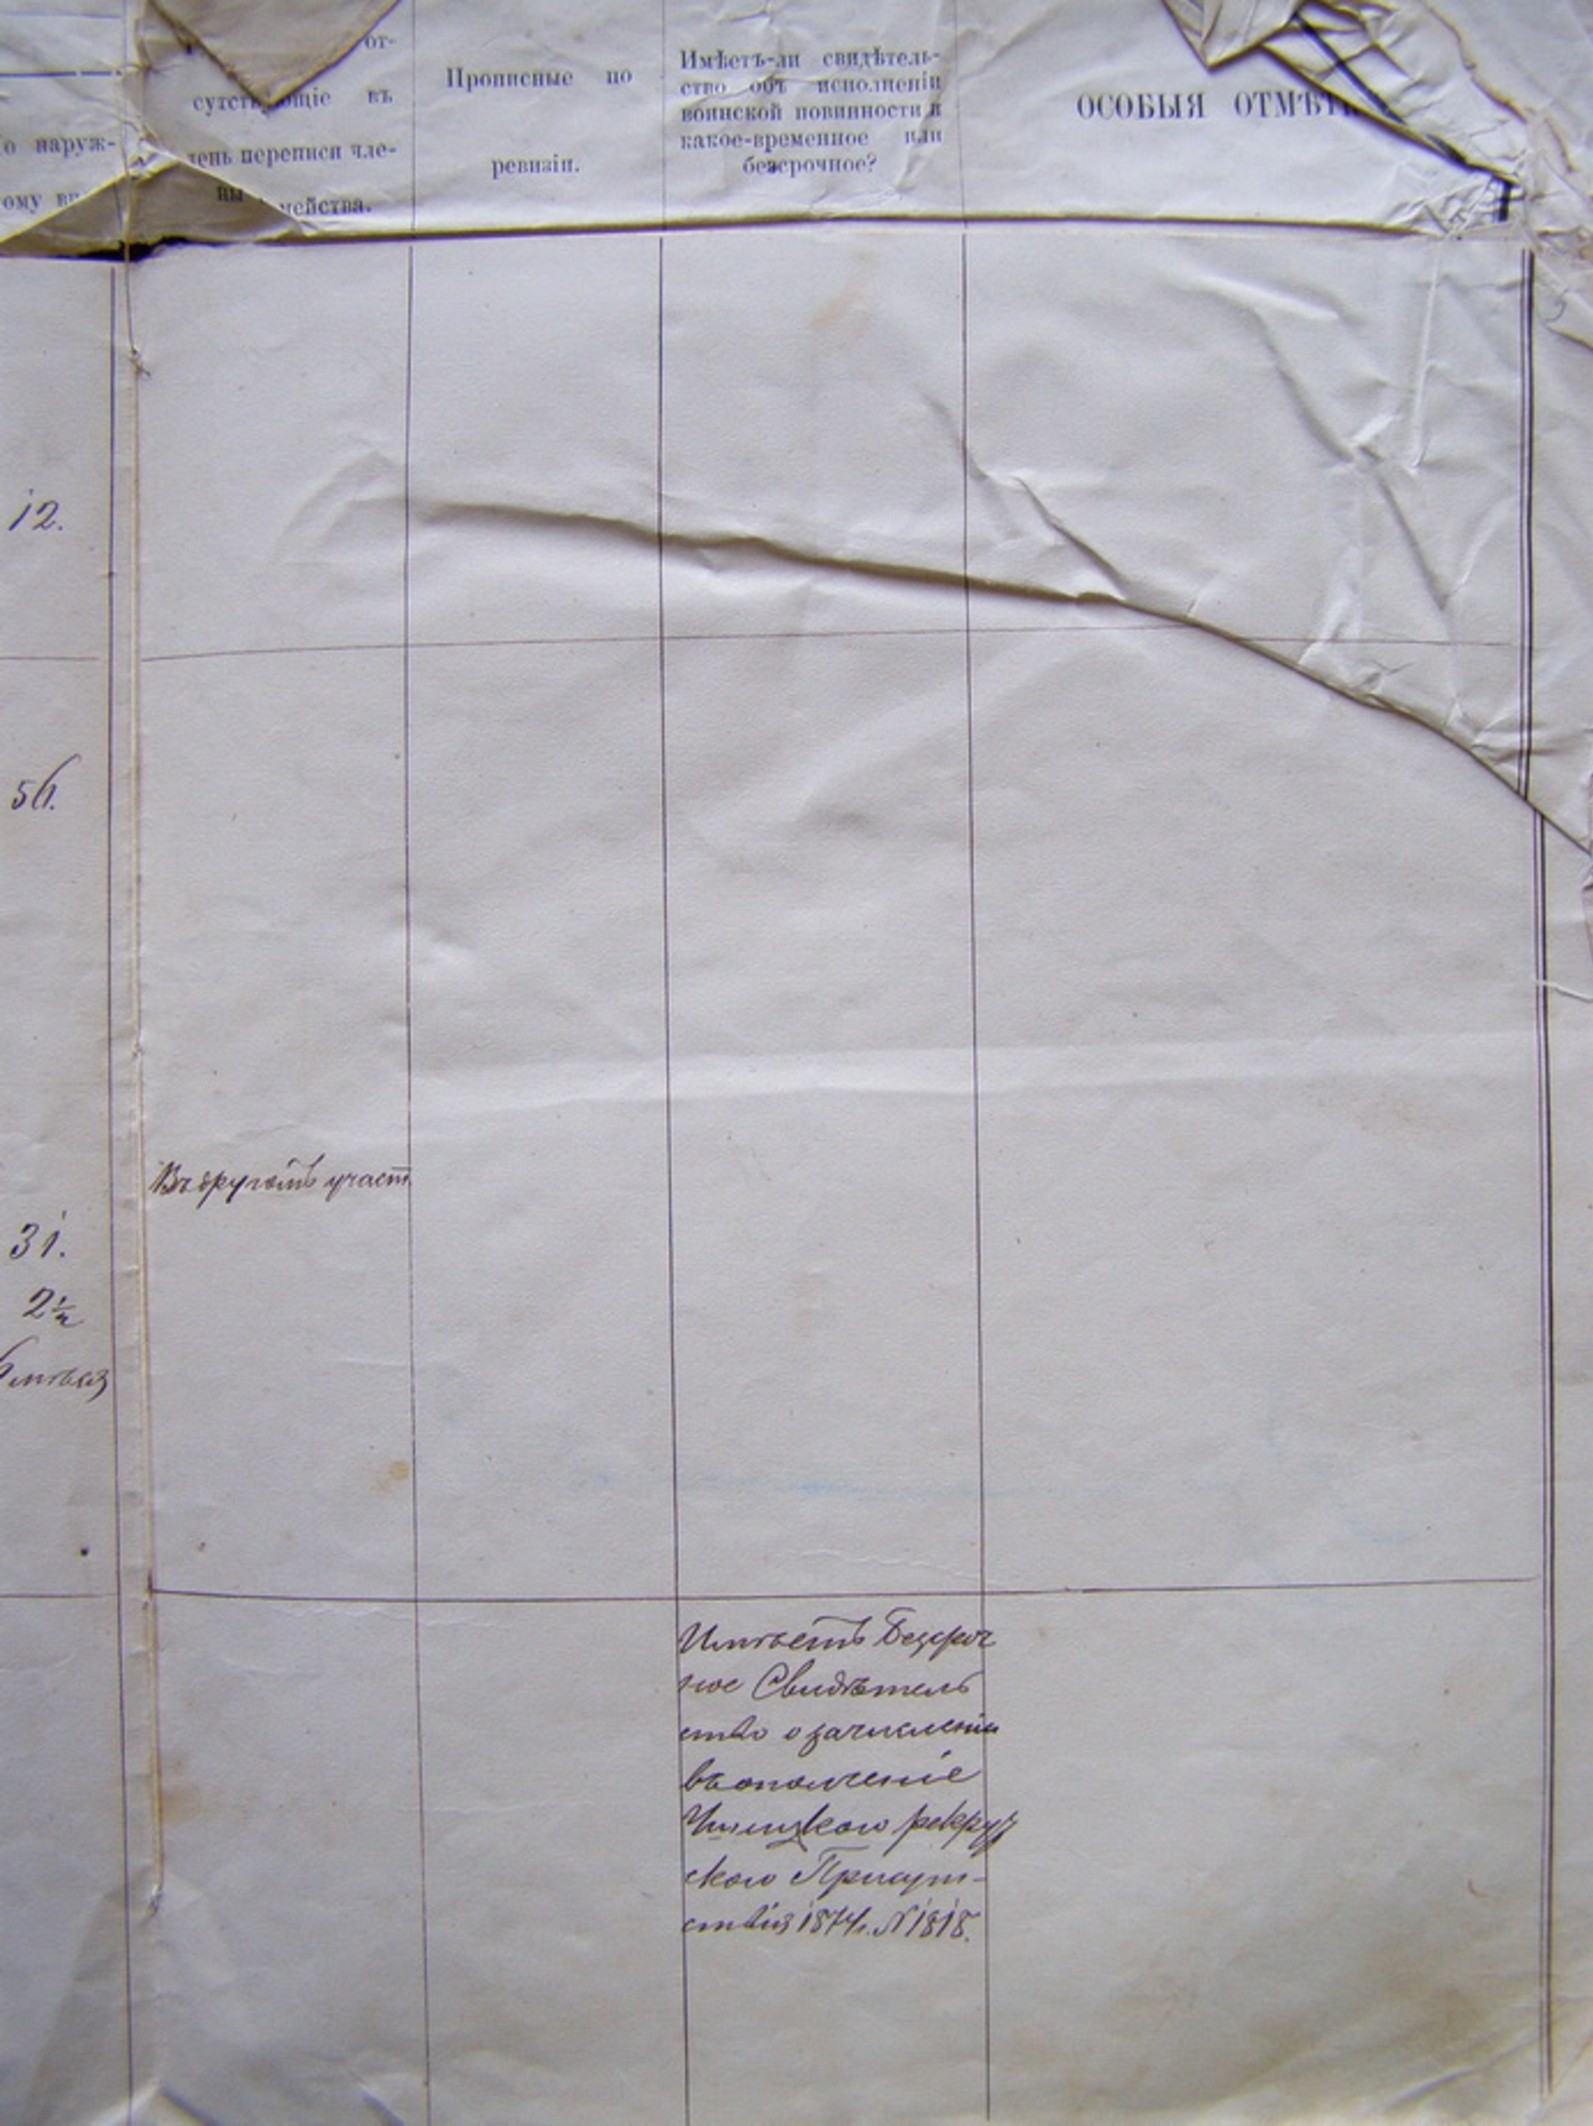 от-
сутст ющіе въ
день переписи чле-
ны мейства.
о наруж-
ому ви
Прописные по
ревизіи.
Имѣетъ-ли свидѣтель-
ство объ исполненіи
воинской повинности и
какое-временное или
безсрочное?
ОСОБЫЯ ОТМѢТК
12.
56.
Въ другомъ участ
31.
2½
6 мѣсяц
Имѣетъ Безсроч
ное Свидѣтель
ство о зачисленіи
въ ополченіе
рекрут
скаго Присут-
ствія 1874 г. № 1818.